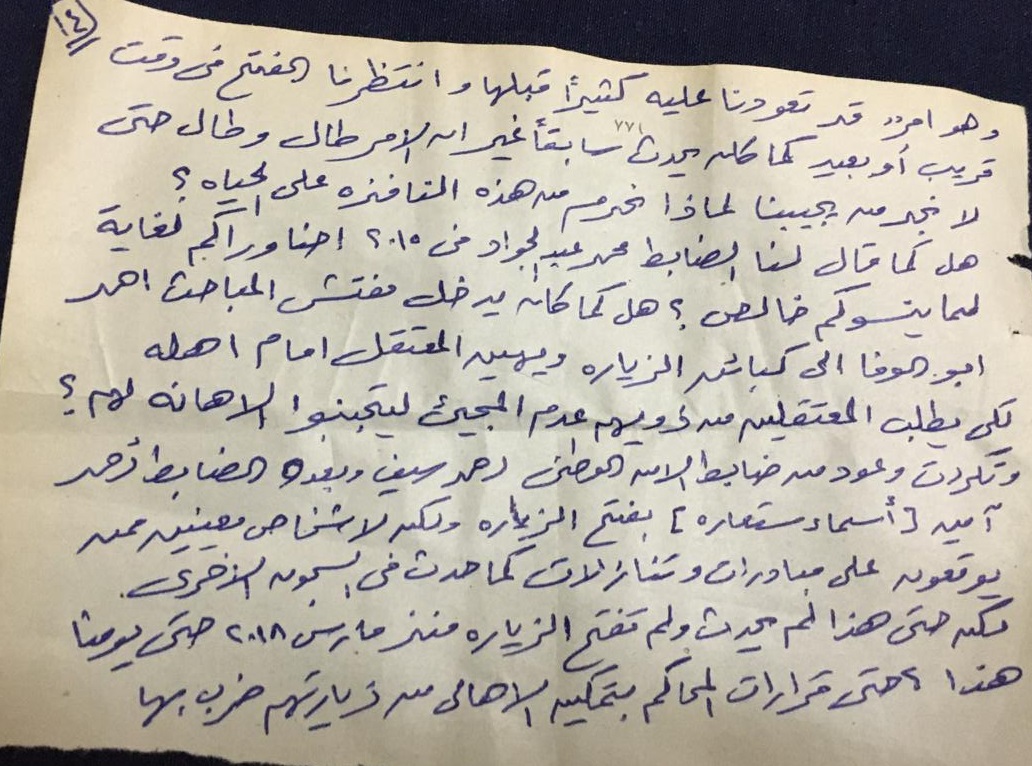 (١٤)
وهو امر قد تعودنا عليه كثيراً قبلها وانتظرنا الفتح فى وقت
قريب أو بعيد كما كان يحدث سابقاً غير ان الامر طال وطال حتى
٧٧١
لا نجد من يجيبنا لماذا نحرم من هذه النافذه على الحياه ؟
هل كما قال لنا الضابط محمد عبد الجواد فى ٢٠١٥ احنا وراكم لغاية
لما ينسوكم خالص ؟ هل كما كان يدخل مفتش المباحث احمد
ابو الوفا الى كبائن الزياره ويهين المعتقل امام اهله
لكى يطلب المعتقلين من ذويهم عدم المجيئ ليتجنبوا الاهانه لهم ؟
وتكررت وعود من ضابط الامن الوطنى احمد سيف وبعده الضابط احمد
أمين [أسماء مستعاره] بفتح الزياره ولكن لاشخاص معينين ممن
يوقعون على مبادرات وتنازلات كما حدث فى السجون الأخرى.
لكن حتى هذا لم يحدث ولم تفتح الزياره منذ مارس ٢٠١٨ حتى يومنا
هذا ؟ حتى قرارات المحاكم بتمكين الاهالى من زيارتهم ضرب بها